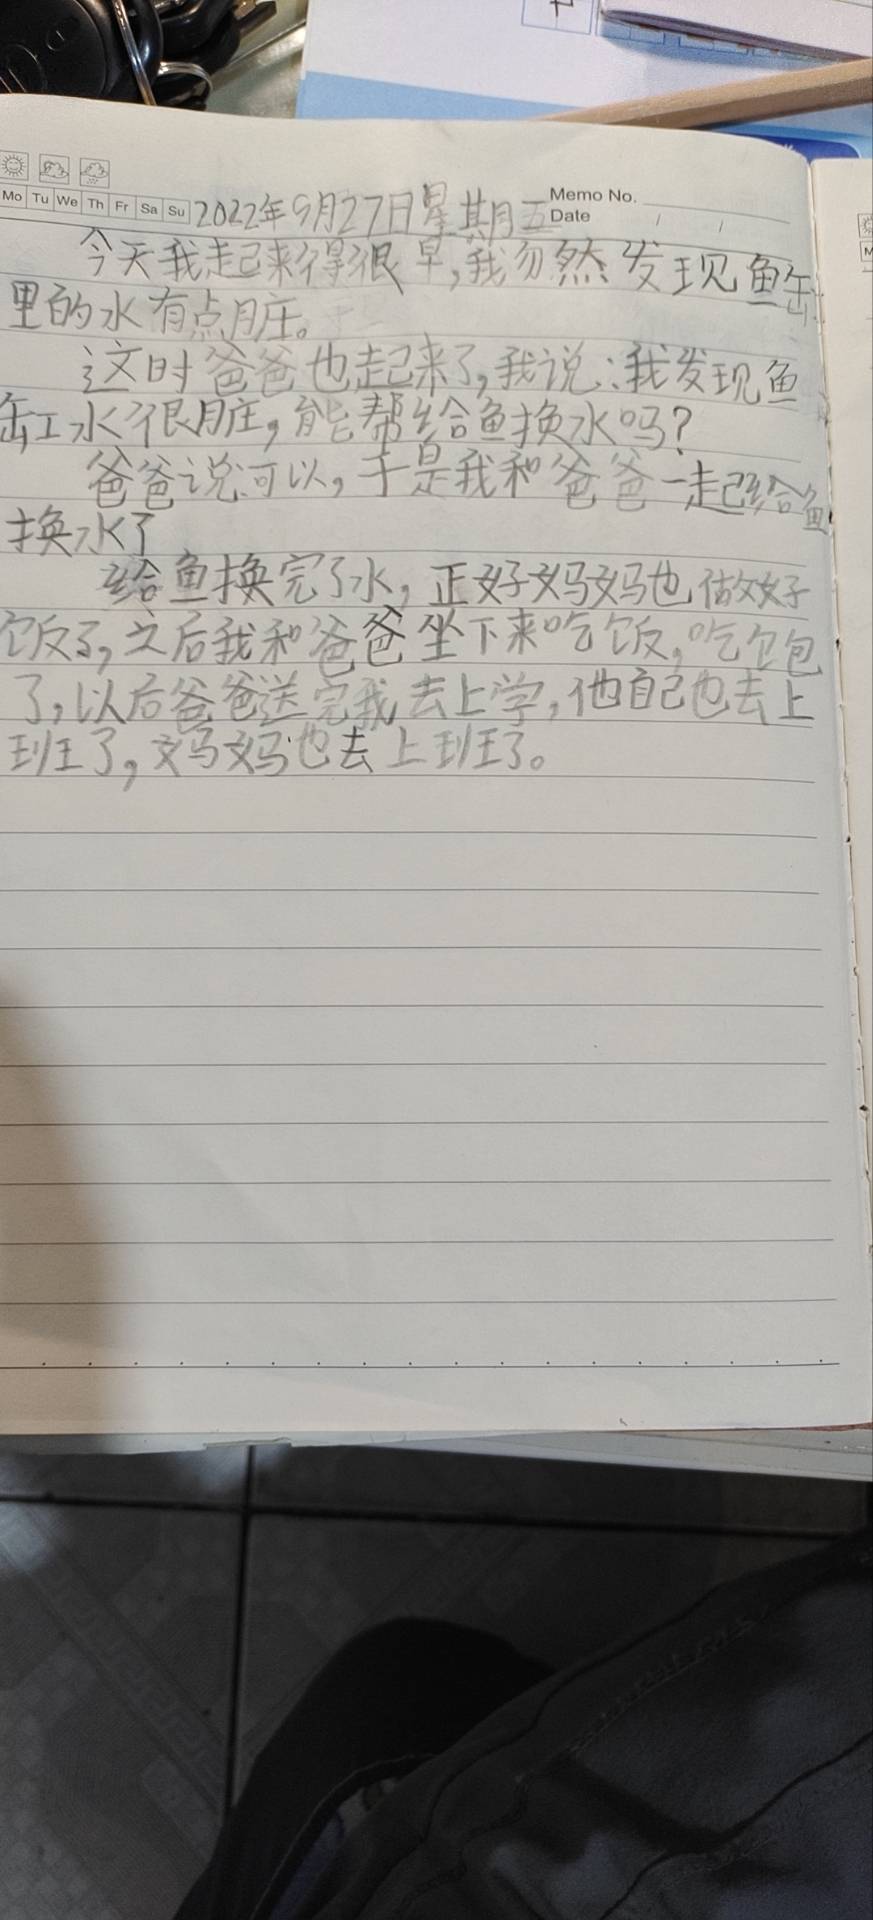 Mo Tu We Th Fr Sa Su
Memo No.
Date
2022年9月27日星期五
今天我起来得很早,我勿然发现鱼缸
里的水有点脏。
这时爸爸也起来了,我说:我发现鱼
缸水很脏,能帮给鱼换水吗?
爸爸说:可以,于是我和爸爸一起给鱼
换水了
给鱼换完了水,正好妈妈也做好
饭了,之后我和爸爸坐下来吃饭,吃饱
了,以后爸爸送完我去上学,他自己也去上
班了,妈妈也去上班了。